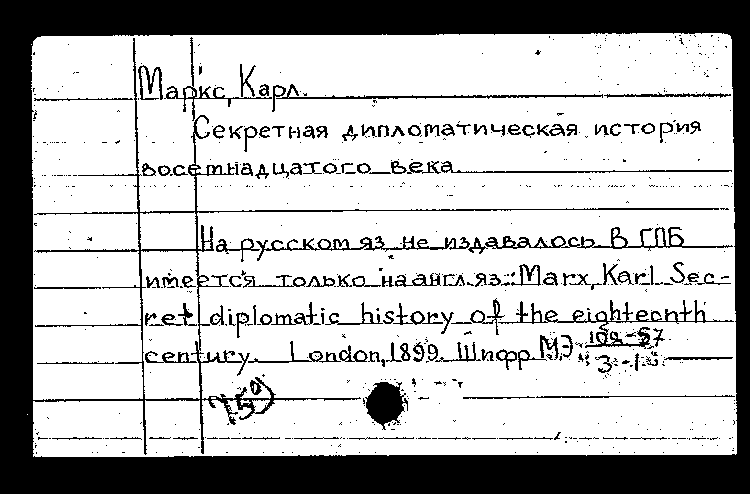 Маркс, Карл.
Секретная дипломатическая история
восемнадцатого века.
На русском яз. не издавалось. В ГПБ
имеется только на англ. яз.: Marx, Karl Sec-
ret diplomatic history of the eighteenth
century. London, 1899. Шифр МЭ